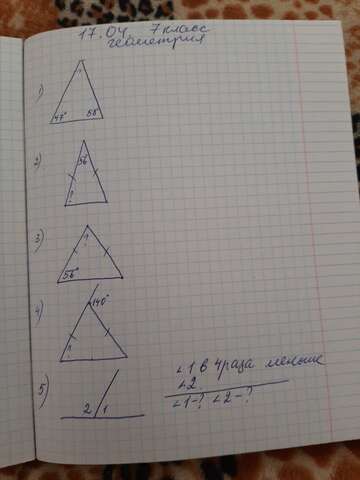 17.04 7 класс
геометрия
1)
?
47° 58°
2)
56
?
3)
?
56°
4)
140°
?
5)
2 1
∠1 в 4 раза меньше
∠2.
∠1-? ∠2-?